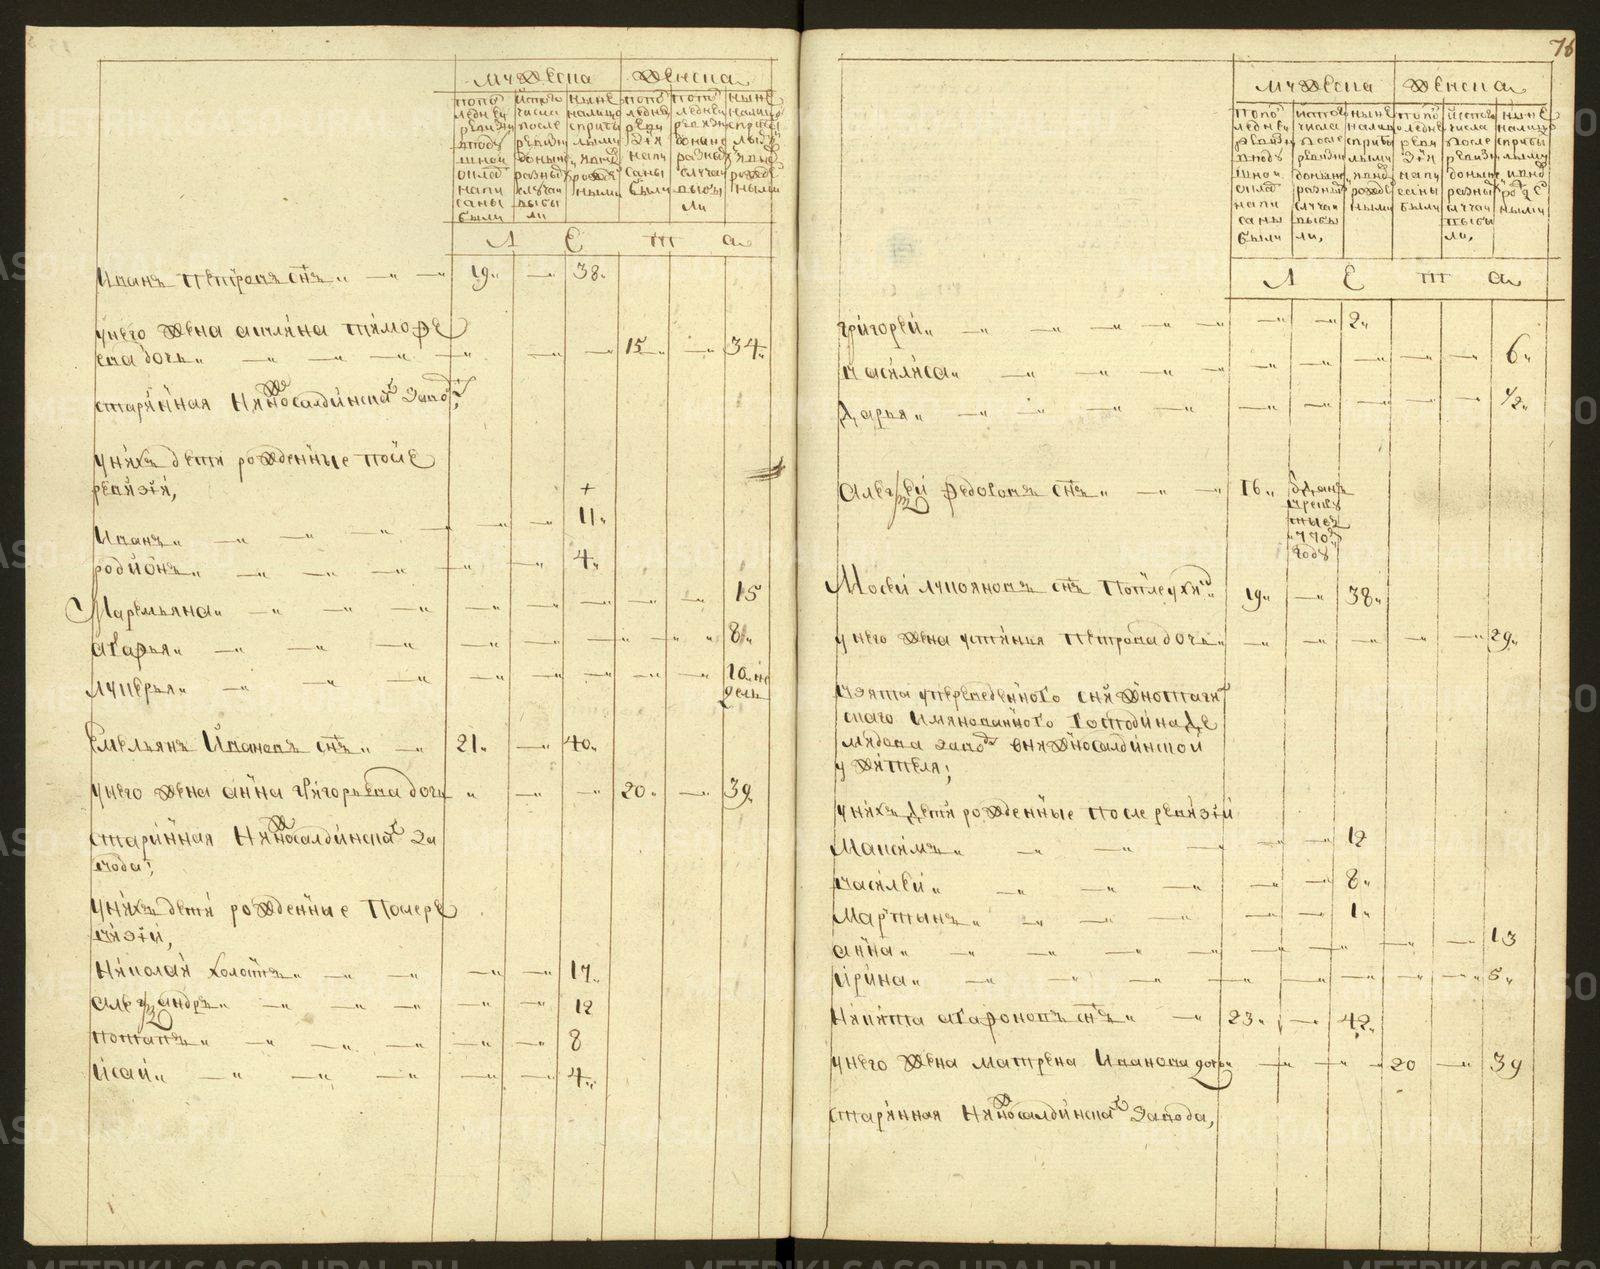 мужеска женска
попо следнеи ревизи вподушнои окладъ написаны были
истого числа после ревизи доныне разными случаи выбыли
ныне налицо сприбылыми и вновь рожденными
попоследнеи ревизи написаны были
после ревизи доныне разными случаи выбыли
ныне налицо сприбылыми и вновь рожденными
Л Е т а
Иванъ Петровъ снъ 19 38
унего жена акилина тимофе
ева дочь 15 34
старинная Нижносалдинскаго Завода,
унихъ дети рожденные после
ревизiи,
Иванъ 11
родионъ 4
Маремьяна 15
агафья 8
лукерья 10 недель
Емельянъ Ивановъ снъ 21 40
унего жена анна григорьева дочь 20 39
старинная Нижносалдинскаго За
вода;
унихъ дети рожденные Послере
визiи,
Николаи 17
александръ 12
потапъ 8
исаи 4
76
мужеска женска
попо следнеи ревизи вподушнои окладъ написаны были
истого числа после ревизи доныне разными случаи выбыли,
ныне налицо сприбылыми и вновь рожденными
попоследнеи ревизи написаны были
истого числа после ревизи доныне разными случаи выбыли,
ныне налицо сприбылыми и вновь рожденными
Л Е т а
григореи 2
василиса 6
Дарья 1/2
алексеи федоровъ снъ 16 зданъ врекруты въ 770 году
Мосеи лукояновъ снъ 19 38
унего жена устинья Петрова дочь 29
взята упереведеннаго сниженотаги
скаго имянованнаго Господина Де
мидова завода внижносалдинскои
у жителя;
унихъ дети рожденные после ревизiи
Максимъ 12
василеи 8
Мартынъ 1
анна 13
ирина 5
Никита агафоновъ снъ 23 42
унего жена матрена Иванова дочь 20 39
старинная Нижносалдинскаго Завода,
METRIKI.GASO-URAL.RU